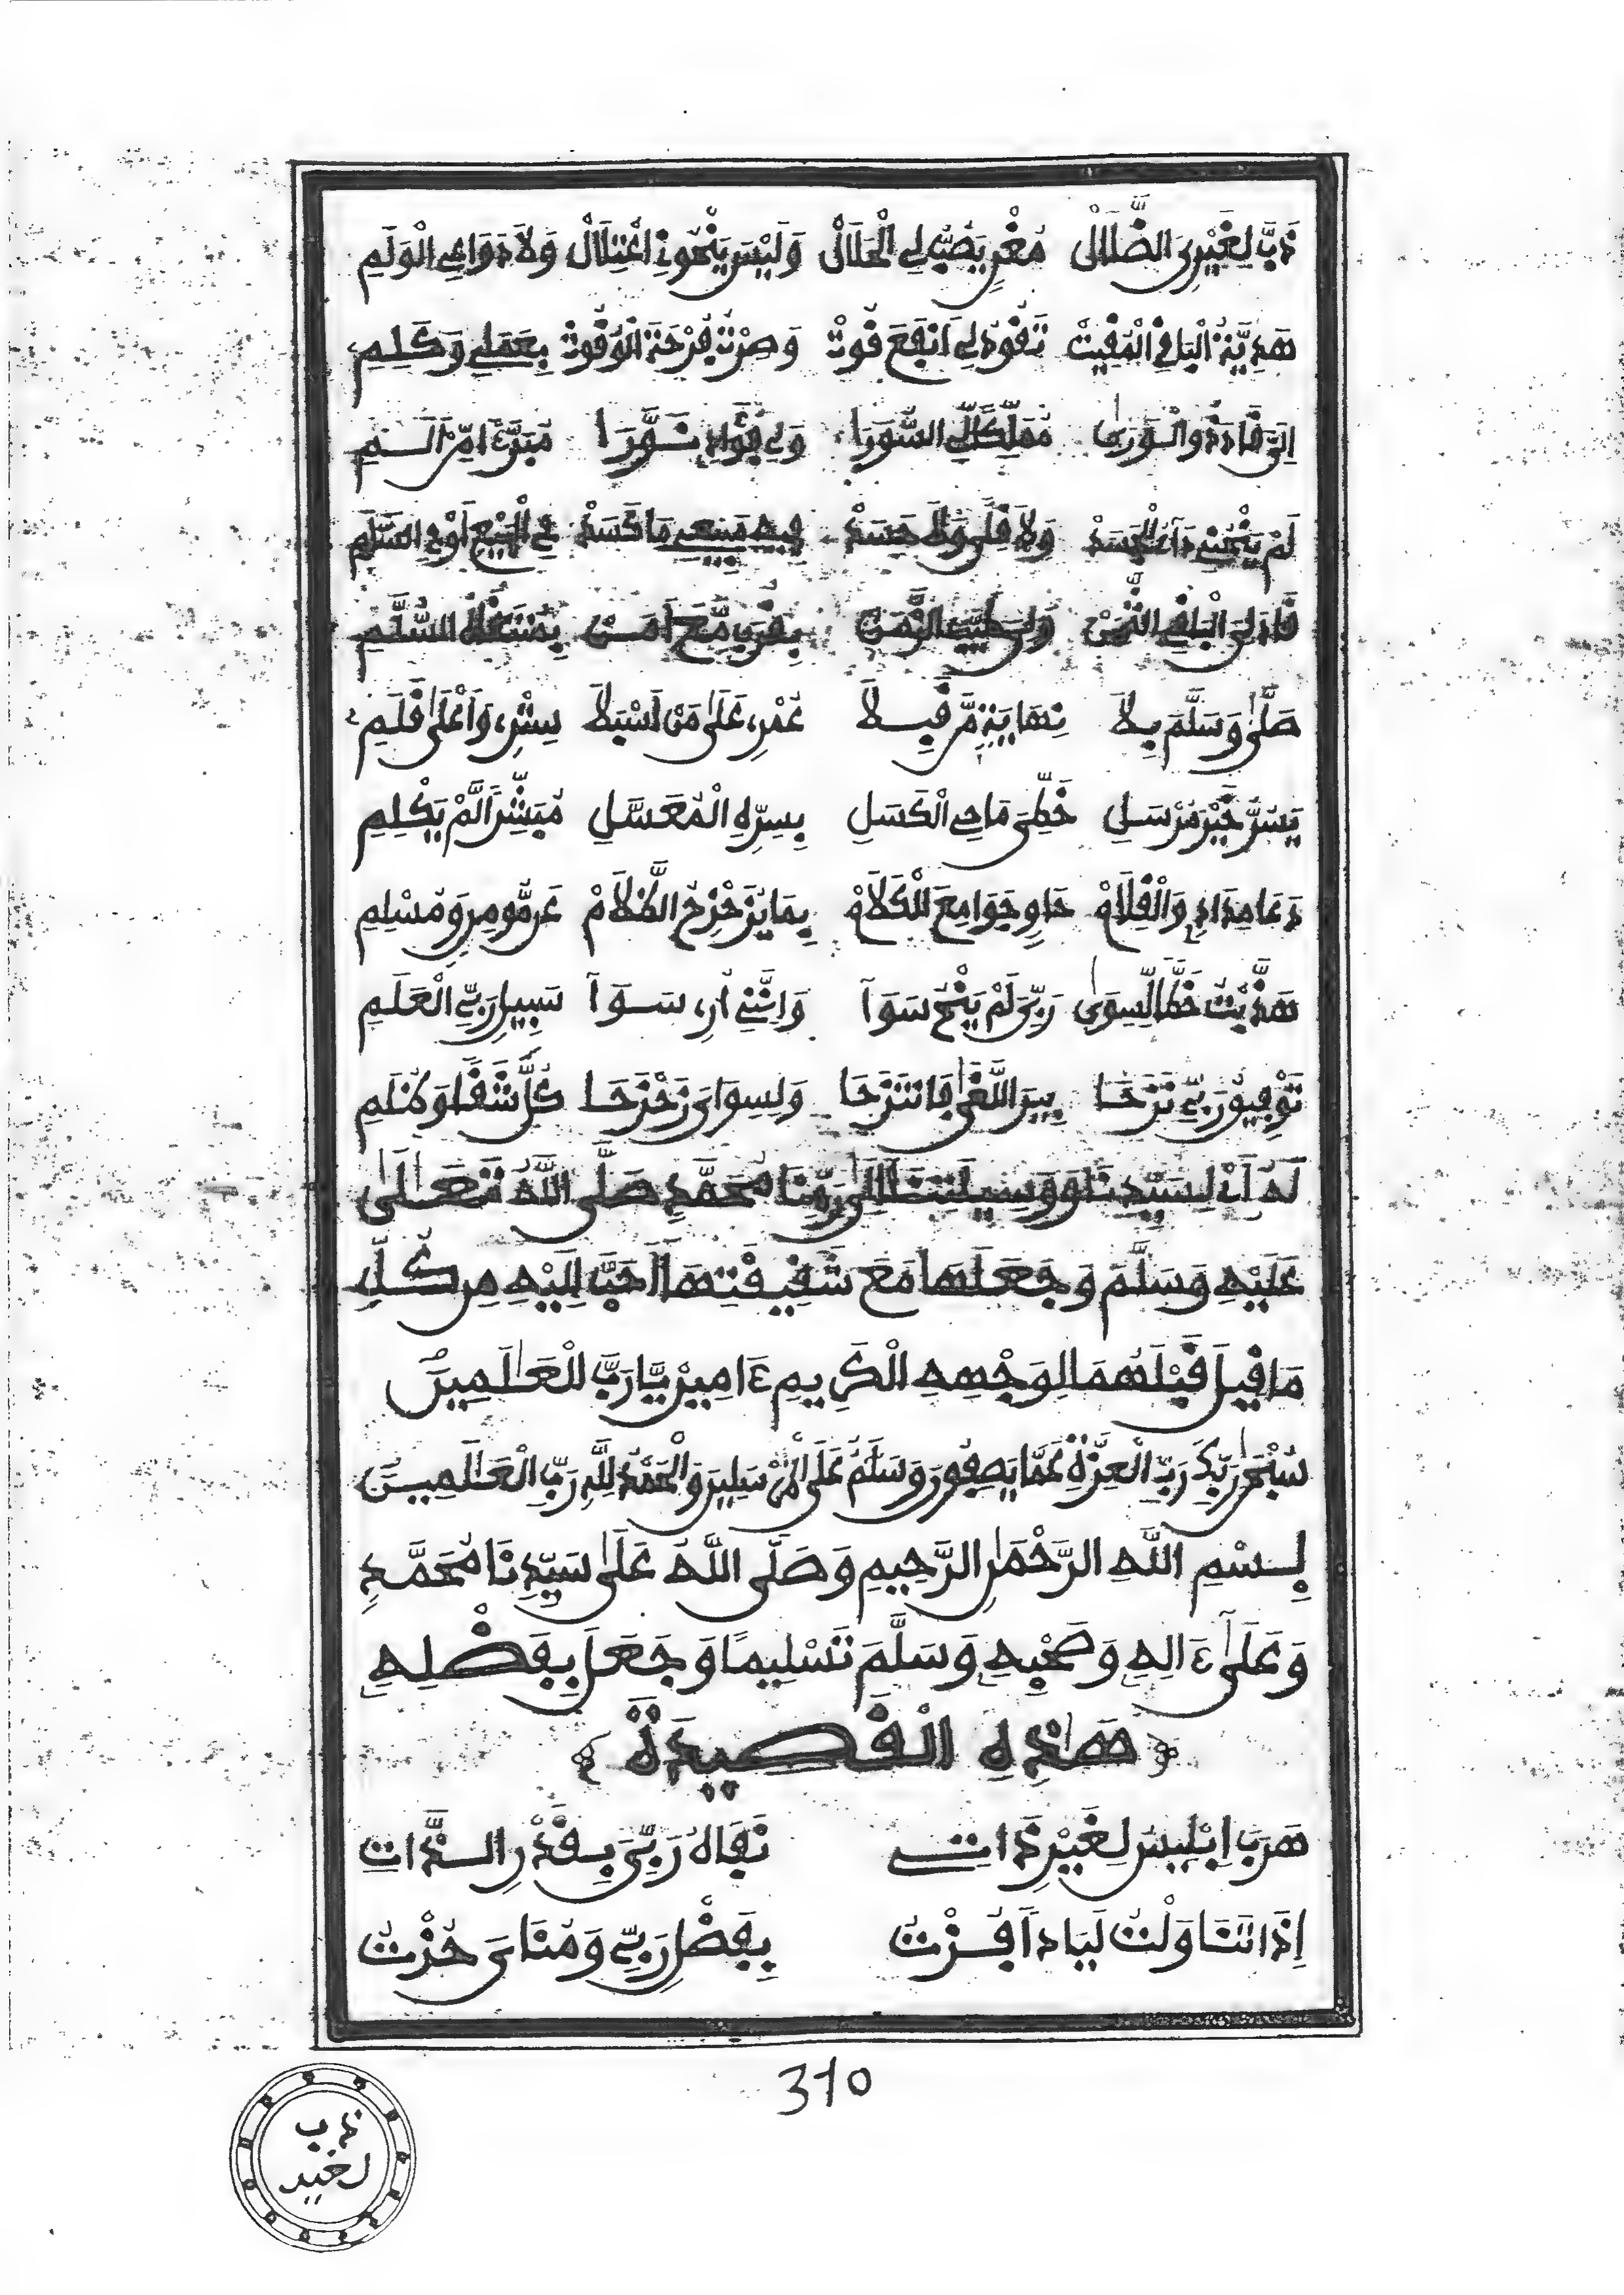 ذَبَّ لِغَيْرِيَ الضَّلَالْ مُغْرٍ يَصُبُّ لِي الْحَلَالْ وَلَيْسَ يَنْحُونِ اعْتِلَالْ وَلَا دَوَاعِي الْوَلَمِ
هَدِيَّةُ الْبَاقِي الْمُقِيتْ تَقُودُ لِي أَنْفَعَ قُوتْ وَصِرْتُ فُرْحَةَ الْوُقُوتْ بِعَمَلِي وَكَلِمِ
إِلَيَّ قَادَ ذُو الْوَرَى مُمَلِّكِي السُّوَرَا وَلِي فُؤَادِي نَوَّرَا مُبَرَّءًا مِّنْ أَلَمِ
لَمْ يَنْحُنِي دَاءُ الْحَسَدْ وَلَا قِلًى وَلَا حَسَدْ فِيهِ مَبِيعِي مَا كَسَدْ فِي الْبَيْعِ أَوْ فِي السَّلَمِ
قَادَ لِيَ الْبَاقِي الثَّمَنْ وَلِيَ طَيَّبَ الزَّمَنْ بِقُرْبٍ مَّعَ أَمَنْ
صَلَّى وَسَلَّمَ بِلَا نِهَايَةٍ مَّنْ قَبِلَا عُمْرِي عَلَى مَنْ أَسْبَلَا سِتْرِي وَأَعْلَى قَلَمِ
يَسُرُّ خَيْرَ مُرْسَلِ خَطِّيَ مَاحِي الْكَسَلِ بِسِرِّهِ الْمُعَسَّلِ مُبَشِّرًا لَّمْ يَكْلِمِ
دَعَا مِدَادِي وَالْقِلَامْ حَاوِي جَوَامِعَ الْكَلَامْ بِمَا يُزَحْزِحُ الظَّلَامْ عَن مُّومِنٍ وَمُسْلِمِ
هَذَّيْتُ خَطًّا لِّسِوَى رَبِّيَ لَمْ يَنْحُ سَوَآ وَإِنَّنِي أَرِي سَوَآ سَبِيلِ رَبِّي الْعَلَمِ
تَوْفِيقُ رَبِّي نَزَحَا بِيرَ اللُّغَى فَانْتَزَحَا وَلِسِوَايَ زَحْزَحَا كُلَّ شَقًا وَظُلَمِ
لَهُ أَنْ لِسَيِّدِنَا وَوَسِيلَتِنَا إِلَى رَبِّنَا مُحَمَّدٍ صَلَّى اللَّهُ تَعَالَى
عَلَيْهِ وَسَلَّمَ وَجَعَلَهَا مَعَ شَقِيقَتِهَا أَحَبَّ إِلَيْهِ مِن كُلِّ
مَا قِيلَ قَبْلَهُمَا لِوَجْهِهِ الْكَرِيمِ ءَامِينَ يَا رَبَّ الْعَالَمِينَ
سُبْحَٰنَ رَبِّكَ رَبِّ الْعِزَّةِ عَمَّا يَصِفُونَ وَسَلَٰمٌ عَلَى الْمُرْسَلِينَ وَالْحَمْدُ لِلَّهِ رَبِّ الْعَٰلَمِينَ
بِسْمِ اللَّهِ الرَّحْمَٰنِ الرَّحِيمِ وَصَلَّى اللَّهُ عَلَى سَيِّدِنَا مُحَمَّدٍ
وَعَلَىٰ ءَالِهِ وَصَحْبِهِ وَسَلَّمَ تَسْلِيمًا وَجَعَلَ بِفَضْلِهِ
هَٰذِهِ الْقَصِيدَةَ
هَرَبَ إِبْلِيسُ لِغَيْرِ ذَاتِي نَفَاهُ رَبِّيَ بِقَدْرِ الذَّاتِ
إِذَا تَنَاوَلْتُ لِيَادًا فُزْتُ بِفَضْلِ رَبِّي وَمُنَايَ حُزْتُ
310
ذب
لغير